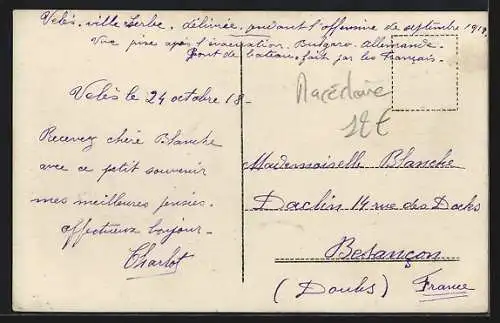 Velès. ville Serbe. délivrée pendant l'offensive de septembre 1918.
Vue prise après l'évacuation. Bulgaro. Allemande.
Pont de bateau. fait par les Français.
Macédoine
12€
Velès le 24 octobre 18.
Recevez chère Blanche
avec ce petit souvenir
mes meilleures pensées.
affectueux bonjour.
Charlot
Mademoiselle Blanche
Daclin 14 rue des Docks
Besançon
(Doubs) France